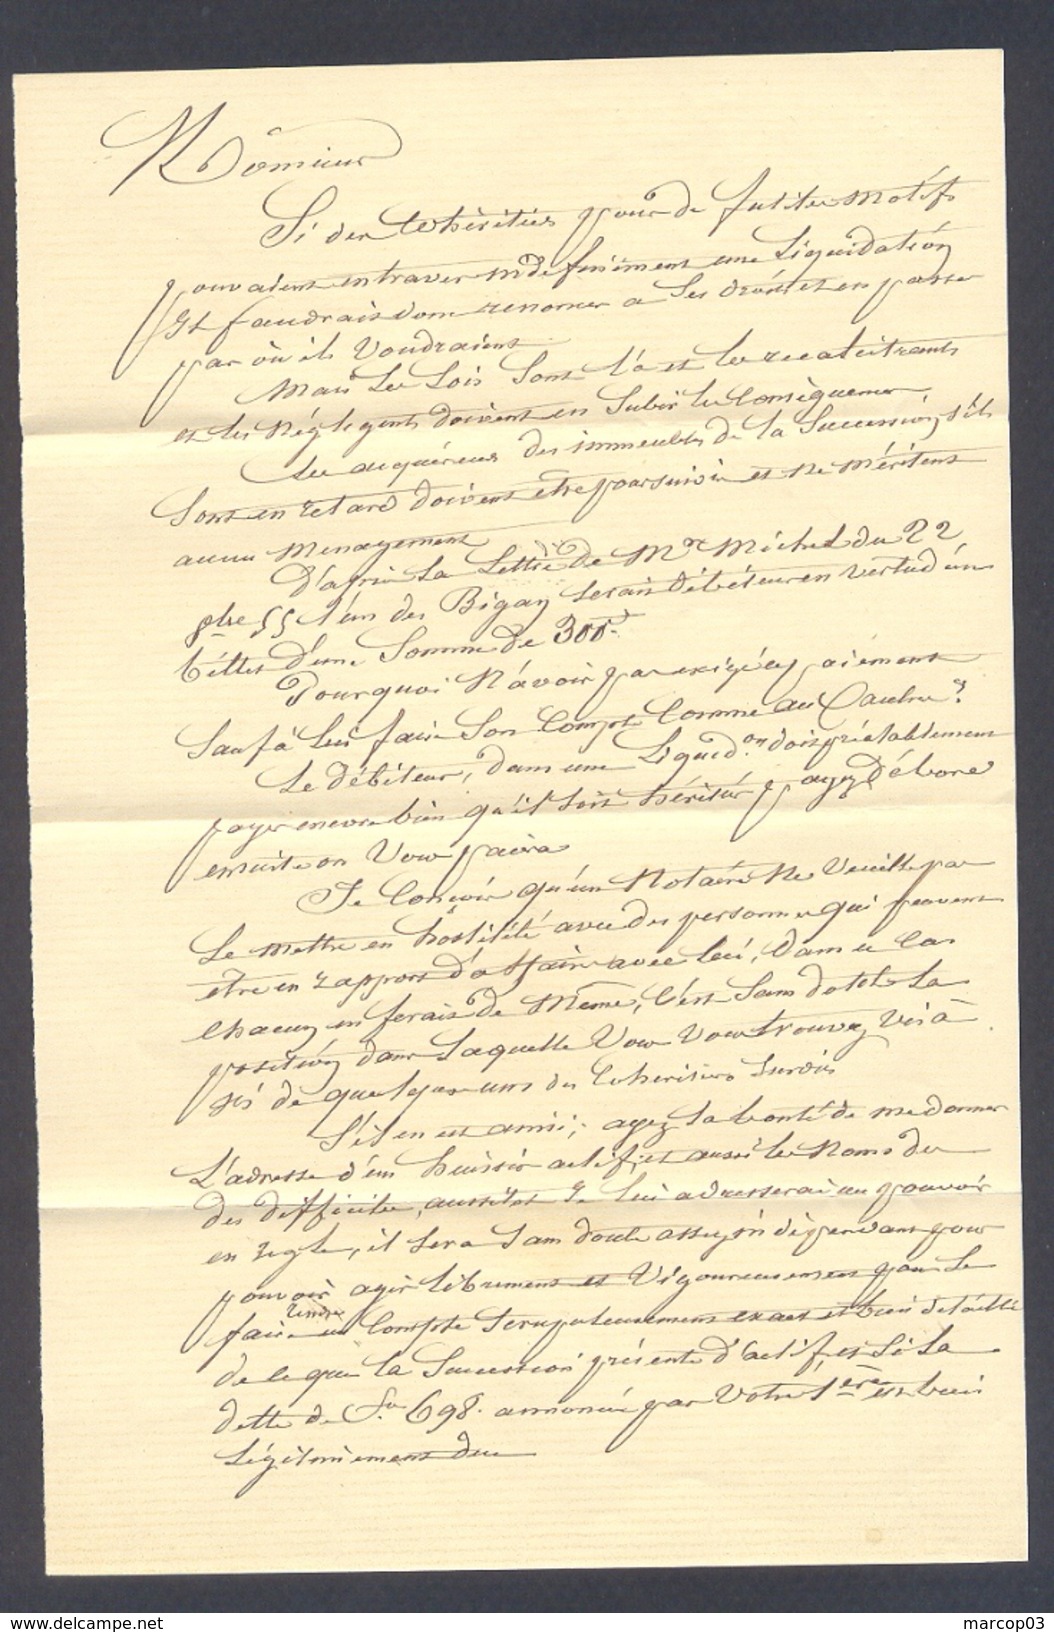 Monsieur
Si des Cohéritiers pour de futiles Motifs
pouvaient entraver indefiniment une Liquidation
Il faudrait donc renoncer a Ses droits et en passer
par où ils Voudraient
Mais Les Lois Sont là et les recalcitrants
et les Négligents doivent en Subir les Conséquences
Les acquéreurs des immeubles de la Succession, s'ils
Sont en retard doivent etre poursuivis et ne méritent
aucun Menagement
D'après La Lettre de Mr Michel du 22
9bre 55 l'un des Bigay serait débiteur en vertu d'un
billet d'une Somme de 300f.
Pourquoi N'avoir pas exigé ce paiement
Sauf à lui faire Son Compte Comme aux Autres?
Le débiteur, dans une Liquidon doit préalablement
payer encore bien qu'il Soit héritier payez d'abord
ensuite on Vous paiera
Je Conçois qu'un Notaire Ne Veuille pas
Se mettre en hostilité avec des personnes qui peuvent
etre en rapport d'affaires avec lui, Dans ce Cas
Chacun en ferait de Même, C'est Sans doute La
position dans Laquelle Vous Vous trouvez Vis à
vis de quelques uns des Coheritiers Surdits
S'il en est ainsi; ayez La bonté de me donner
L'adresse d'un huissier actif, et aussi les Noms de
des difficiles, aussitot Je lui adresserai un pouvoir
en règle, il sera Sans doute assez indépendant pour
pouvoir agir librement et Vigoureusement pour Se
faire rendre un Compte Scrupuleusement exact et bien detaillé
de ce que la Succession présente d'actif, et Si La
dette de fr 698. annoncée par Votre 1ère est bien
Légitimement due